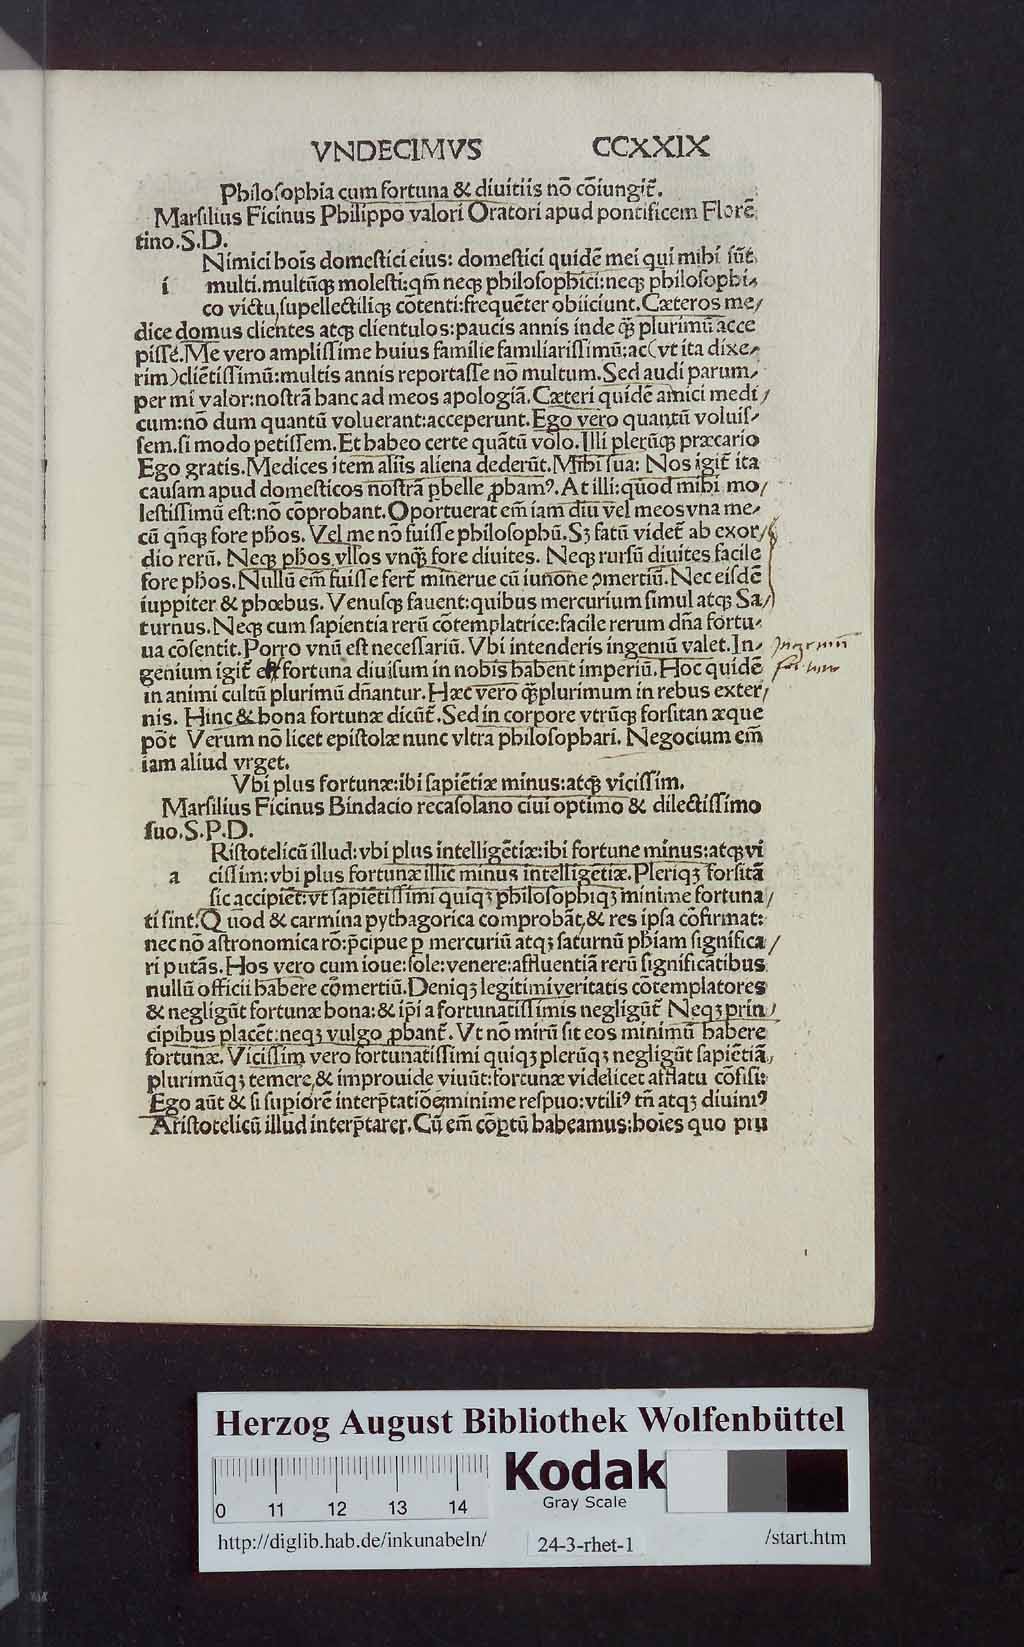 VNDECIMVS CCXXIX
Philosophia cum fortuna & diuitiis nō cōiungit᷑.
Marsilius Ficinus Philippo valori Oratori apud pontificem Florē
tino.S.D.
Nimici hois domestici eius: domestici quidē mei qui mihi sūt
i multi.multūqꝫ molesti:qm̄ neqꝫ philosophici:neqꝫ philosophi⸗
co victu,supellectiliqꝫ cōtenti:frequēter obiiciunt.Cæteros me⸗
dice domus clientes atqꝫ clientulos:paucis annis inde qꝫ̄ plurimū acce
pisse.Me vero amplissime huius familie familiarissimū:ac(vt ita dixe⸗
rim)cliētissimū:multis annis reportasse nō multum.Sed audi parum⸗
per mi valor:nostrā hanc ad meos apologiā.Cæteri quidē amici medi⸗
cum:nō dum quantū voluerant:acceperunt.Ego vero quantū voluis⸗
sem.si modo petissem.Et habeo certe quātū volo.Illi plerūqꝫ præcario
Ego gratis.Medices item aliis aliena dederūt.Mihi sua: Nos igit᷑ ita
causam apud domesticos nostrā pbelle ꝓbamꝰ.At illi:quod mihi mo⸗
lestissimū est:nō cōprobant.Oportuerat em̄ iam diu vel meos vna me⸗
cū qn̄qꝫ fore ph̄os.Vel me nō fuisse philosophū.Sꝫ fatū videt᷑ ab exor⸗
dio rerū. Neqꝫ ph̄os vllos vnqꝫ̄ fore diuites. Neqꝫ rursū diuites facile
fore ph̄os.Nullū em̄ fuisse fert᷑ minerue cū iunone ꝯmertiū.Nec eisdē
iuppiter & phœbus.Venusqꝫ fauent:quibus mercurium simul atqꝫ Sa⸗
turnus.Neqꝫ cum sapientia rerū cōtemplatrice:facile rerum dn̄a fortu⸗
ua cōsentit.Porro vnū est necessariū.Vbi intenderis ingeniū valet.In⸗
genium igit᷑ & fortuna diuisum in nobis habent imperiū.Hoc quidē
in animi cultū plurimū dn̄antur.Hæc vero qꝫ̄plurimum in rebus exter⸗
nis. Hinc & bona fortunæ dicūt᷑.Sed in corpore vtrūqꝫ forsitan æque
pōt Verum nō licet epistolæ nunc vltra philosophari. Negocium em̄
iam aliud vrget.
Ingenium
fortuna
Vbi plus fortunæ:ibi sapiētiæ minus:atqꝫ vicissim.
Marsilius Ficinus Bindacio recasolano ciui optimo & dilectissimo
suo.S.P.D.
Ristotelicū illud:vbi plus intelligētiæ:ibi fortune minus:atqꝫ vi
a cissim:vbi plus fortunæ illic minus intelligētiæ.Pleriqꝫ forsitā
sic accipiēt:vt sapiētissimi quiqꝫ philosophiqꝫ minime fortuna⸗
ti sint.Quod & carmina pythagorica comprobāt,& res ipsa cōfirmat:
nec nō astronomica rō:p̄cipue ꝑ mercuriū atqꝫ saturnū ph̄iam significa⸗
ri putās.Hos vero cum ioue:sole:venere:affluentiā rerū significātibus
nullū officii habere cōmertiū.Deniqꝫ legitimi veritatis cōtemplatores
& negligūt fortunæ bona:& ip̄i a fortunatissimis negligūt᷑ Neqꝫ prin⸗
cipibus placēt:neqꝫ vulgo ꝓbant᷑.Vt nō mirū sit eos minimū habere
fortunæ.Vicissim vero fortunatissimi quiqꝫ plerūqꝫ negligūt sapiētiā,
plurimūqꝫ temere,& improuide viuūt:fortunæ videlicet afflatu cōfisi:
Ego aūt & si supiorē interp̄tatiōē minime respuo:vtiliꝰ tn̄ atqꝫ diuiniꝰ
Aristotelicū illud interp̄tarer.Cū em̄ cōꝑtū habeamus:hoies quo plu
Herzog August Bibliothek Wolfenbüttel
Kodak
Gray Scale
0 11 12 13 14
http://diglib.hab.de/inkunabeln/ 24-3-rhet-1 /start.htm